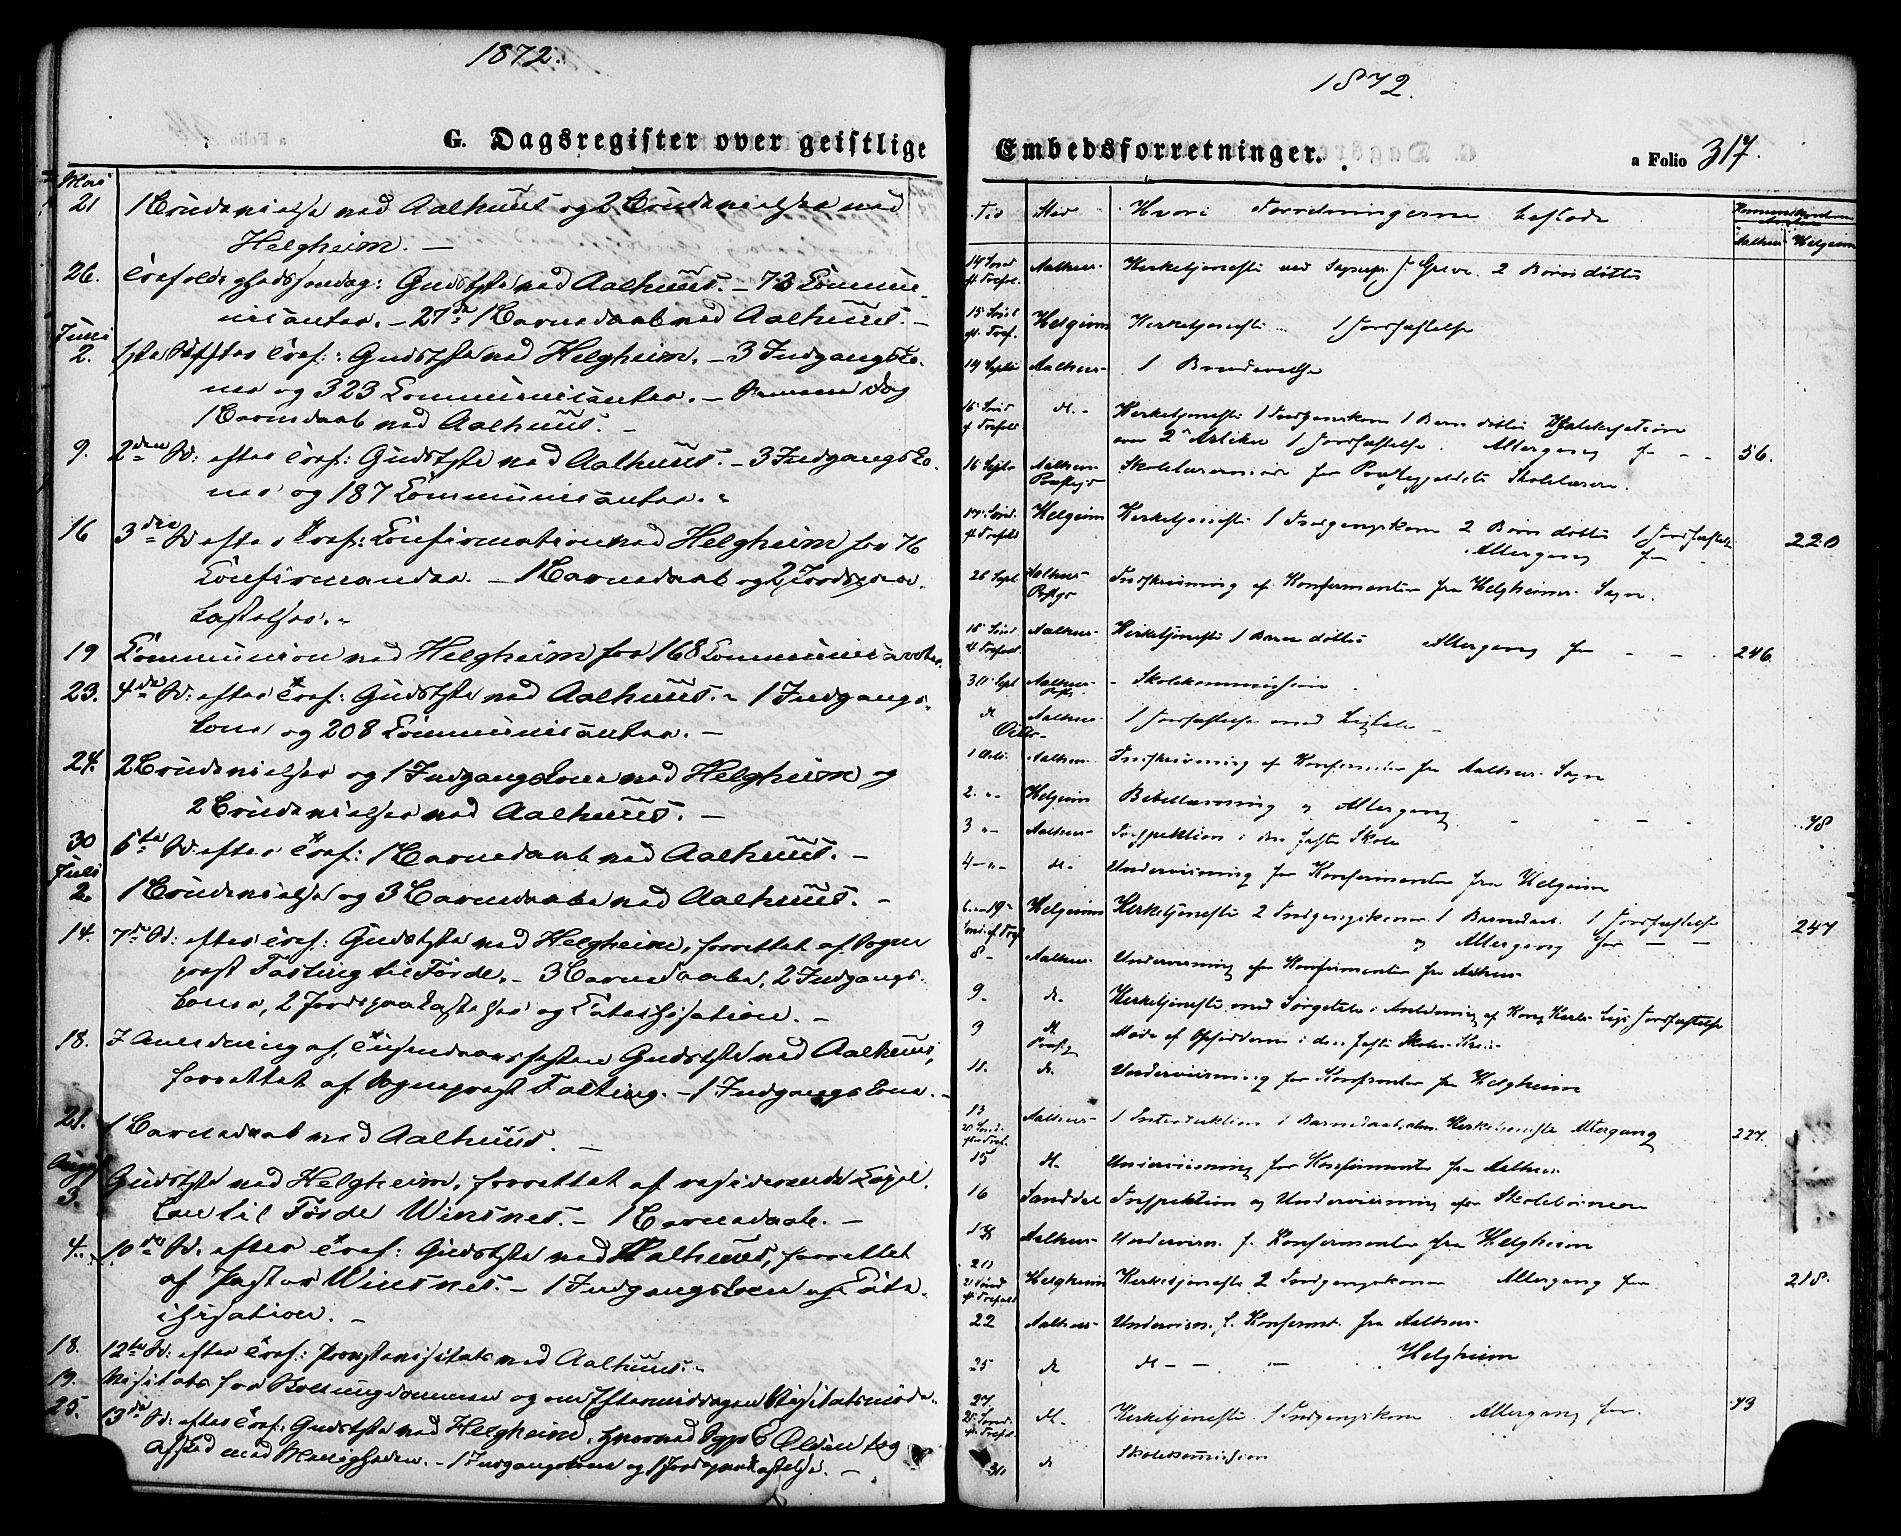 1872.
G. Dagsregister over geistlige
Mai
21 1 Brudevielse ved Aalhuus og 2 Brudevielser ved
Helgheim. —
26. Trefoldighedssøndag: Gudstjste ved Aalhuus. — 73 Commu-
nicanter. — 27de 1 Barnedaab ved Aalhuus. —
Juni
2. 1ste S. efter Tref.: Gudstjste ved Helgheim. — 3 Indgangsko-
ner og 323 Communicanter. — Samme Dag
1 Barnedaab ved Aalhuus. —
9. 2den S: efter Tref: Gudstjste ved Aalhuus. — 3 Indgangsko-
ner og 187 Communicanter. —
16 3die S. efter Tref: Confirmation ved Helgheim for 76
Confirmander. — 1 Barnedaab og 2 Jordspaa-
kastelser. —
19 Communion ved Helgheim for 168 Communicanter.
23. 4de S: efter Tref: Gudstjste ved Aalhuus. — 1 Indgangs-
kone og 208 Communicanter. —
24. 2 Brudevielser og 1 Indgangskone ved Helgheim og
2 Brudevielser ved Aalhuus. —
30 5te S. efter Tref: 1 Barnedaab ved Aalhuus. —
Juli
2. 1 Brudevielse og 3 Barnedaabe ved Aalhuus. —
14. 7de S: efter Tref: Gudstjste ved Helgheim, forrettet af Sogne
præst Fasting til Førde. — 3 Barnedaabe, 2 Indgangs-
koner, 2 Jordspaakastelser og Catechisation. —
18. I Anledning af Tusendaarsfesten Gudstjste ved Aalhuus,
forrettet af Sognepræst Fasting. — 1 Indgangskone. —
21. 1 Barnedaab ved Aalhuus. —
August
3. Gudstjste ved Helgheim, forrettet af residerende Capel-
lan til Førde Winsnes. — 1 Barnedaab. —
4. 10de S. efter Tref: Gudstjste ved Aalhuus, forrettet
af Pastor Winsnes. — 1 Indgangskone og Cate-
chisation. —
18. 12te S: efter Tref: Provstevisitats ved Aalhuus. —
19. Visitats for Skoleungdommen og om Eftermiddagen Visitatsmøde.
25. 13de S: efter Tref: Gudstjste ved Helgheim, hvorved Sgpr E. Olsen tog
Afsked med Menigheden. — 1 Indgangskone og 1 Jordspaakastelse. —
1872.
Embedsforretninger. a Folio 317.
Tid Sted Hvori Forretningerne bestode Kommunikanternes
Aalhus Helgeim
14 Sønd. ft. Trefol. Aalhus- Kirketjeneste ved Sognepr. J. Greve. 2 Børn døbtes
15 Sønd. ft. Tref. Helgeim Kirketjeneste 1 Jordfæstelse
14 Septbr Aalhus- 1 Brudevielse
16 Sønd ft Trefold. d. - Kirketjeneste 1 Indgangskone 1 Barn døbtes Katekisation
over 2. Artikel 1 Jordfæstelse. Altergang for - - 56.
16 Septbr Aalhus- Præstegd Skolelærermøde for Præstegjeldets Skolelærere.
17. Sønd. ft Trefold Helgeim Kirketjeneste 1 Indgangskone 2 Børn døbtes 1 Jordfæstelse
Altergang for - 220
26 Sept Aalhus- Prstgd Indskrivning af Konfirmanter fra Helgheims Sogn.
18 Sønd ft Trefold. Aalhus- Kirketjeneste 1 Barn døbtes Altergang for - - - 246.
30 Sept Aalhus- Prstg. - Skolekommission
d Aalhus- 1 Jordfæstelse med Ligtale
Octbr-
1 Octbr. Aalhus- Indskrivning af Konfirmanter fra Aalhus Sogn
2. "- Helgeim Bibellæsning og Altergang - - - - 48
3 "- Aalhus- Inspektion i den faste Skole
4 - "- d. - Underviisning for Konfirmanter fra Helgeim
6. - 19- Sønd. ft Tref Helgeim Kirketjeneste 2 Indgangskoner 1 Barnedaab 1 Jordfæstelse
og Altergang for — — 247
8 - Aalhus- Underviisning for Konfirmanter fra Aalhus-
9 - d. - Kirketjeneste med Sørgetale i Anledning af Kong Karls Lig. Jordfæstelse
9 d. Prstg Møde af Opsidderne i den faste Skoles Kreds
11. d. Underviisning for Konfirmanter fra Helgheim
13 20 Sønd. efter Tref. Aalhus- 1 Introduktion 1 Barnedaab, alm. Kirketjeneste Altergang 227.
15 d. - Underviisning for Konfirmanter fra Aalhus.
16 Sanddal Inspektion og Underviisning for Skolebørnene
18 Aalhus- Undervisn. f. Konfirmanter fra Helgheim
20 21 Sønd ft Trefold Helgheim Kirketjeneste 2 Indgangskoner Altergang for 218.
22 Aalhus- Undervisn. f. Konfirmt. fra Aalhus-
25 d d - — - Helgheim
27 22 Sønd. ft Trefold. d. - Kirketjeneste 1 Indgangskone. Altergang for 73
30 d Skolekommission